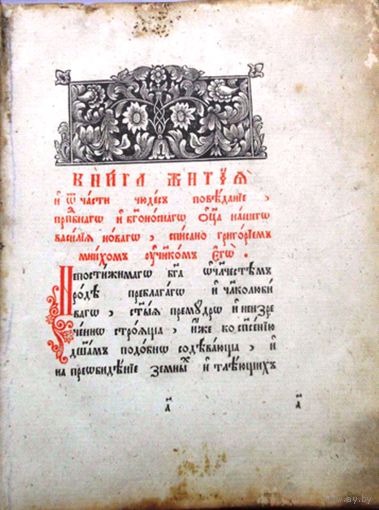 КНИ́ГА ЖИТІЯ̀
И҆ ѿ ча́сти чꙋде́съ повѣ́данїе ,
прпⷣбнагѡ и҆ бг҃оно́снагѡ ѻ҆ц҃а̀ на́шегѡ
васи́лїѧ но́вагѡ , спи́сано григо́рїем
мни́хом ᲂу҆чн҃ко́м є҆гѡ̀ .
Непостижи́магѡ бг҃а
ро́дѣ преблага́гѡ и҆ чл҃колюби
ваго , прему́дрѡ и҆ неизре
че́ннѡ стро́ѧща , и҆̀же ко спасе́нїю
дꙋша́м подо́бнѡ содѣ́вающа , и҆
на преѡби́дѣнїе земны́х и҆ тлѣ́ющих
а҃ а҃